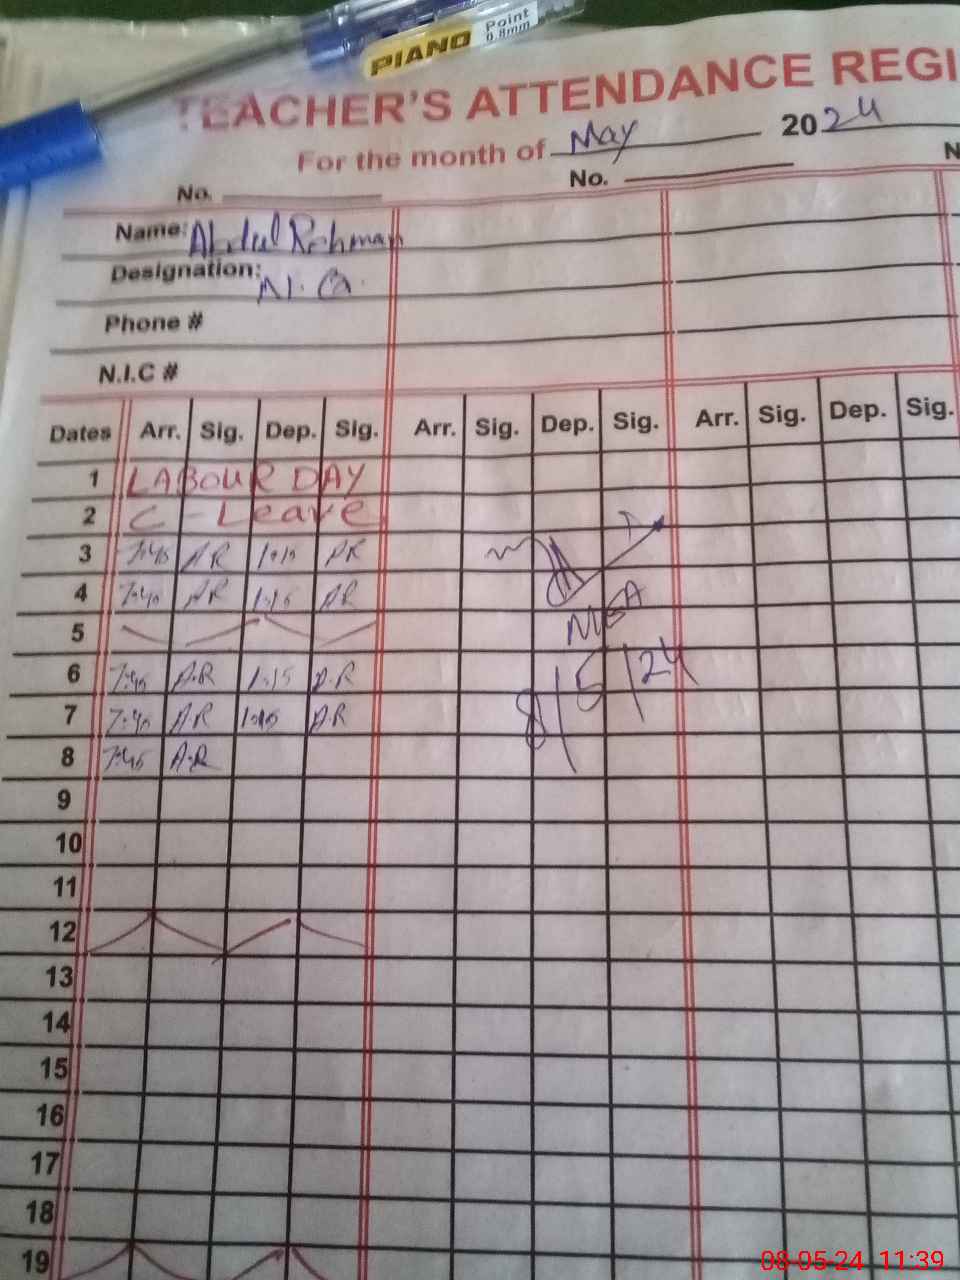 PIANO Point 0.8mm
TEACHER'S ATTENDANCE REGI
For the month of May 2024
No. No. N
Name: Abdul Rehman
Designation: N. Q.
Phone #
N.I.C #
Dates Arr. Sig. Dep. Sig. Arr. Sig. Dep. Sig. Arr. Sig. Dep. Sig.
1 LABOUR DAY
2 C - Leave
3 7:45 A R 1:15 AR
4 7:40 AR 1:15 AR
5
6 7:45 A.R 1:15 A.R
7 7:40 A.R 1:15 A.R
8 7:45 A.R
8/5/24
9
10
11
12
13
14
15
16
17
18
19
08-05-24 11:39